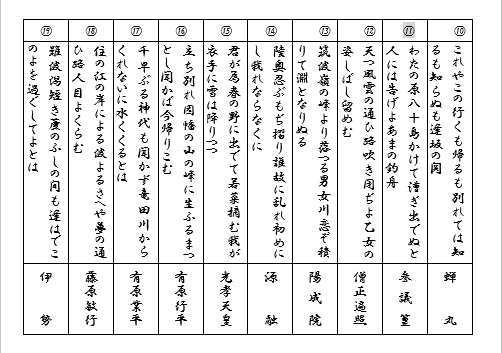 ⑩
これやこの行くも帰るも別れては知
るも知らぬも逢坂の関
蝉丸
⑪
わたの原八十島かけて漕ぎ出でぬと
人には告げよあまの釣舟
参議篁
⑫
天つ風雲の通ひ路吹き閉ぢよ乙女の
姿しばし留めむ
僧正遍照
⑬
筑波嶺の峰より落つる男女川恋ぞ積
りて淵となりぬる
陽成院
⑭
陸奥忍ぶもぢ摺り誰故に乱れ初めに
し我れならなくに
源融
⑮
君が為春の野に出でて若菜摘む我が
衣手に雪は降りつつ
光孝天皇
⑯
立ち別れ因幡の山の峰に生ふるまつ
とし聞かば今帰りこむ
有原行平
⑰
千早ぶる神代も聞かず竜田川から
くれないに水くくるとは
有原業平
⑱
住の江の岸による波よるさへや夢の通
ひ路人目よくらむ
藤原敏行
⑲
難波潟短き蘆のふしの間も逢はでこ
のよを過ぐしてよとは
伊勢